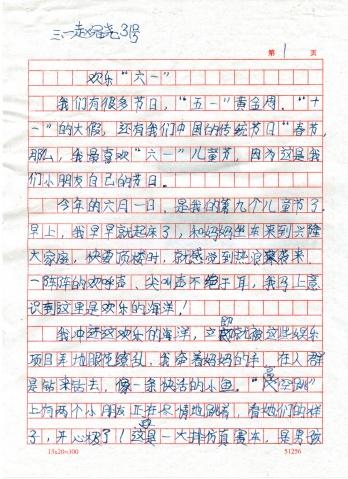 三一赵 3号
第 1 页
欢乐“六一”
我们有很多节日，“五一”黄金周，“十
一”的大假，还有我们中国的传统节日“春节，
那么，我最喜欢“六一”儿童节，因为这是我
们小朋友自己的节日。
今年的六月一日，是我的第九个儿童节了。
早上，我早早就起床了，和妈妈坐车来到兴隆
大家庭，快要顶楼时，就感觉到热浪袭来，
一阵阵的欢呼声、尖叫声不绝于耳，我马上意
识到这里是欢乐的海洋！
我冲进这欢乐的海洋，立即就被这些娱乐
项目弄地眼花缭乱，我牵着妈妈的手，在人群
里钻来钻去，像一条快活的小鱼，“高空跳”
上有两个小朋友正在尽情地跳着，看她们的样
子，开心极了！这是一大排仿真赛车，是男孩
15x20=300
51256